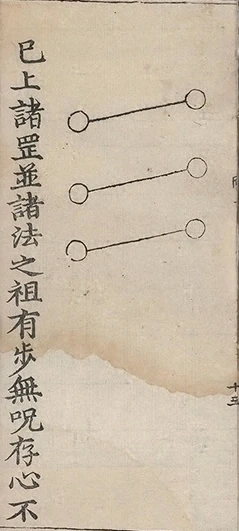 已上諸罡並諸法之祖有步無呪存心不
十三